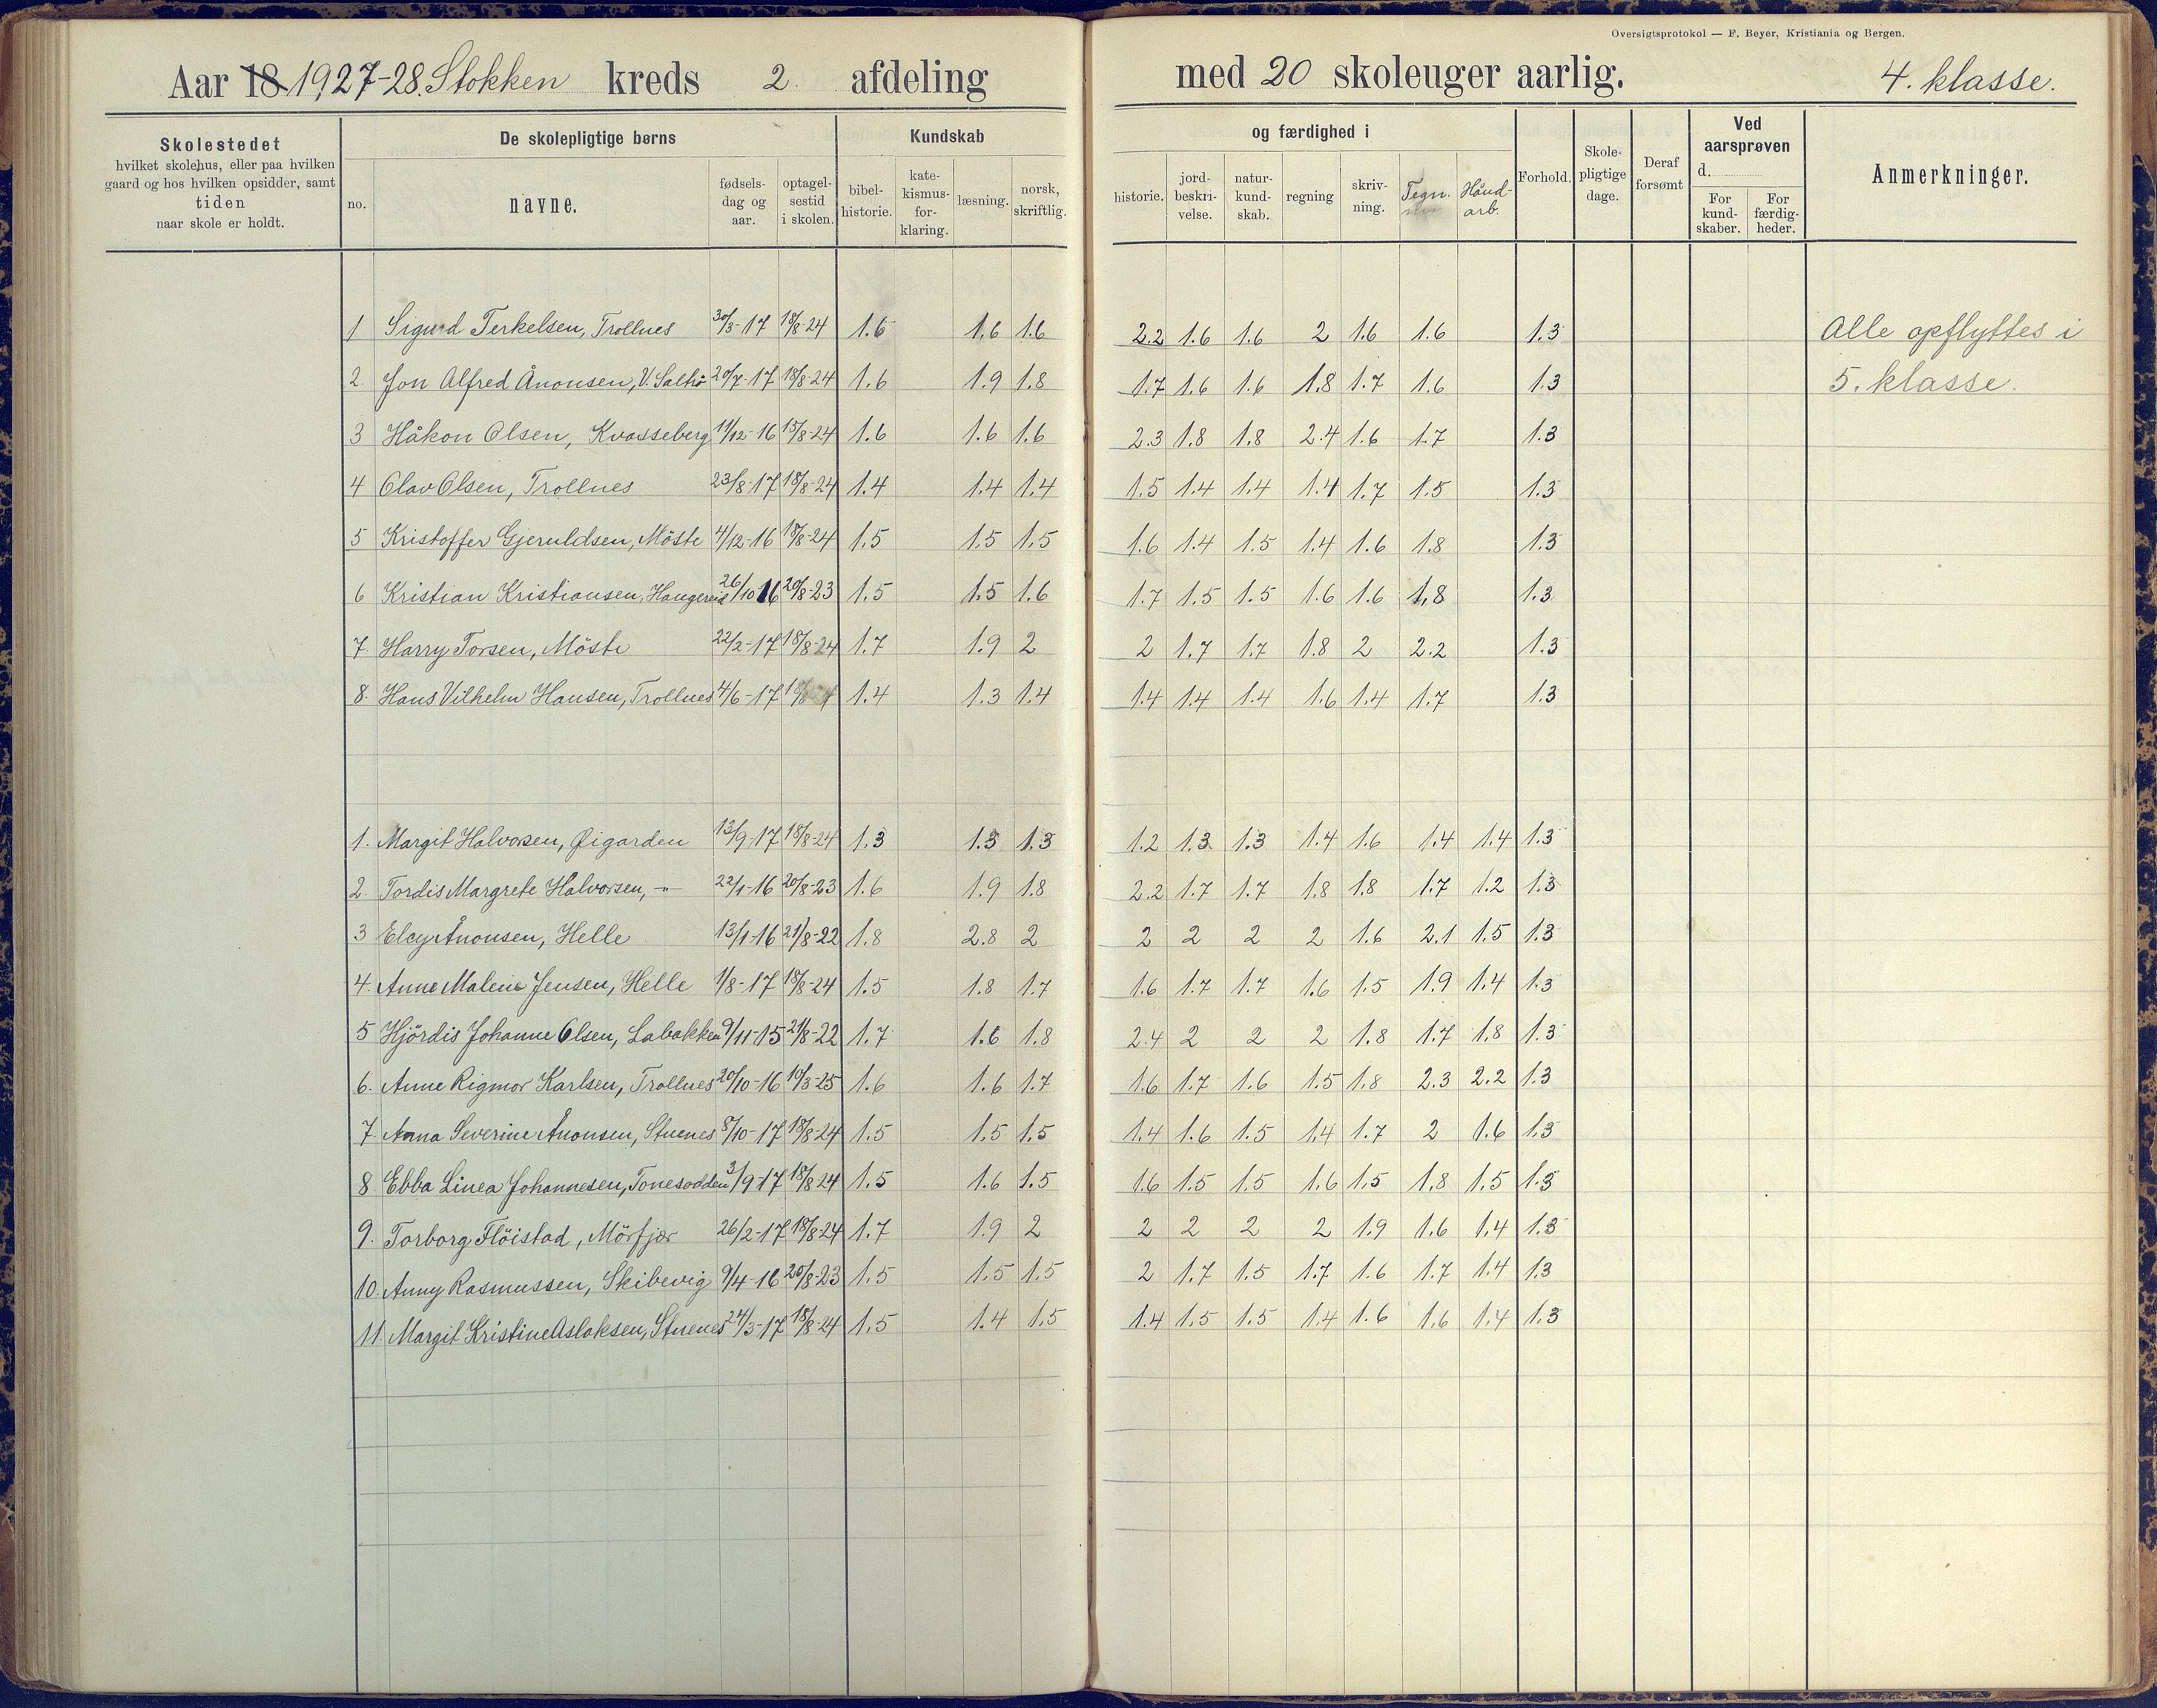 Oversigtsprotokol — F. Beyer, Kristiania og Bergen.
Aar 18 1927-28. Stokken kreds 2. afdeling med 20 skoleuger aarlig. 4. klasse.
Skolestedet
hvilket skolehus, eller paa hvilken
gaard og hos hvilken opsidder, samt
tiden
naar skole er holdt.
De skolepligtige børns
no. navne. fødsels-dag og aar. optagel-sestid i skolen.
Kundskab og færdighed i
bibel-historie. kate-kismus-for-klaring. læsning. norsk, skriftlig. historie. jord-beskri-velse. natur-kund-skab. regning skriv-ning. Tegn. Hånd-arb.
Forhold. Skole-pligtige dage. Deraf forsømt Ved aarsprøven d. For kund-skaber. For færdig-heder. Anmerkninger.
1 Sigurd Terkelsen, Trollnes 30/3-17 18/8-24 1.6 1.6 1.6 2.2 1.6 1.6 2 1.6 1.6 1.3 Alle opflyttes i
2. Jon Alfred Ånonsen, V. 20/7-17 18/8-24 1.6 1.9 1.8 1.7 1.6 1.6 1.8 1.7 1.6 1.3 5. klasse.
3 Håkon Olsen, Kvasseberg 19/12-16 15/8-24 1.6 1.6 1.6 2.3 1.8 1.8 2.4 1.6 1.7 1.3
4 Olav Olsen, Trollnes 23/8-17 18/8-24 1.4 1.4 1.4 1.5 1.4 1.4 1.4 1.7 1.5 1.3
5 Kristoffer Gjeruldsen, Möste 4/12-16 18/8-24 1.5 1.5 1.5 1.6 1.4 1.5 1.4 1.6 1.8 1.3
6 Kristian Kristiansen, Haugereid 26/10-16 20/8-23 1.5 1.5 1.6 1.7 1.5 1.5 1.6 1.6 1.8 1.3
7. Harry Torsen, Möste 22/2-17 18/8-24 1.7 1.9 2 2 1.7 1.7 1.8 2 2.2 1.3
8. Hans Vilhelm Hansen, Trollnes 4/6-17 1.4 1.3 1.4 1.4 1.4 1.4 1.6 1.4 1.7 1.3
1. Margit Halvorsen, Øigarden 13/9-17 18/8-24 1.3 1.3 1.3 1.2 1.3 1.3 1.4 1.6 1.4 1.4 1.3
2. Tordis Margrete Halvorsen, -"- 22/1-16 20/8-23 1.6 1.9 1.8 2.2 1.7 1.7 1.8 1.8 1.7 1.2 1.3
3 Elcy Ånonsen, Helle 13/1-16 21/8-22 1.8 2.8 2 2 2 2 2 1.6 2.1 1.5 1.3
4. Anne Malene Jensen, Helle 1/8-17 18/8-24 1.5 1.8 1.7 1.6 1.7 1.7 1.6 1.5 1.9 1.4 1.3
5 Hjördis Johanne Olsen, Labakken 9/11-15 21/8-22 1.7 1.6 1.8 2.4 2 2 2 1.8 1.7 1.8 1.3
6. Anne Rigmor Karlsen, Trollnes 20/10-16 10/3-25 1.6 1.6 1.7 1.6 1.7 1.6 1.5 1.8 2.3 2.2 1.3
7. Anna Severine Ånonsen, Stuenes 8/10-17 18/8-24 1.5 1.5 1.5 1.4 1.6 1.5 1.4 1.7 2 1.6 1.3
8. Ebba Linea Johannesen, Tonesodden 3/9-17 18/8-24 1.5 1.6 1.5 1.6 1.5 1.5 1.6 1.5 1.8 1.5 1.3
9. Torborg Flöistad, Mörfjær 26/2-17 18/8-24 1.7 1.9 2 2 2 2 2 1.9 1.6 1.4 1.3
10. Anny Rasmussen, Skibevig 9/4-16 20/8-23 1.5 1.5 1.5 2 1.7 1.5 1.7 1.6 1.7 1.4 1.3
11. Margit Kristine Aslaksen, Stuenes 24/3-17 18/8-24 1.5 1.4 1.5 1.4 1.5 1.5 1.4 1.6 1.6 1.4 1.3